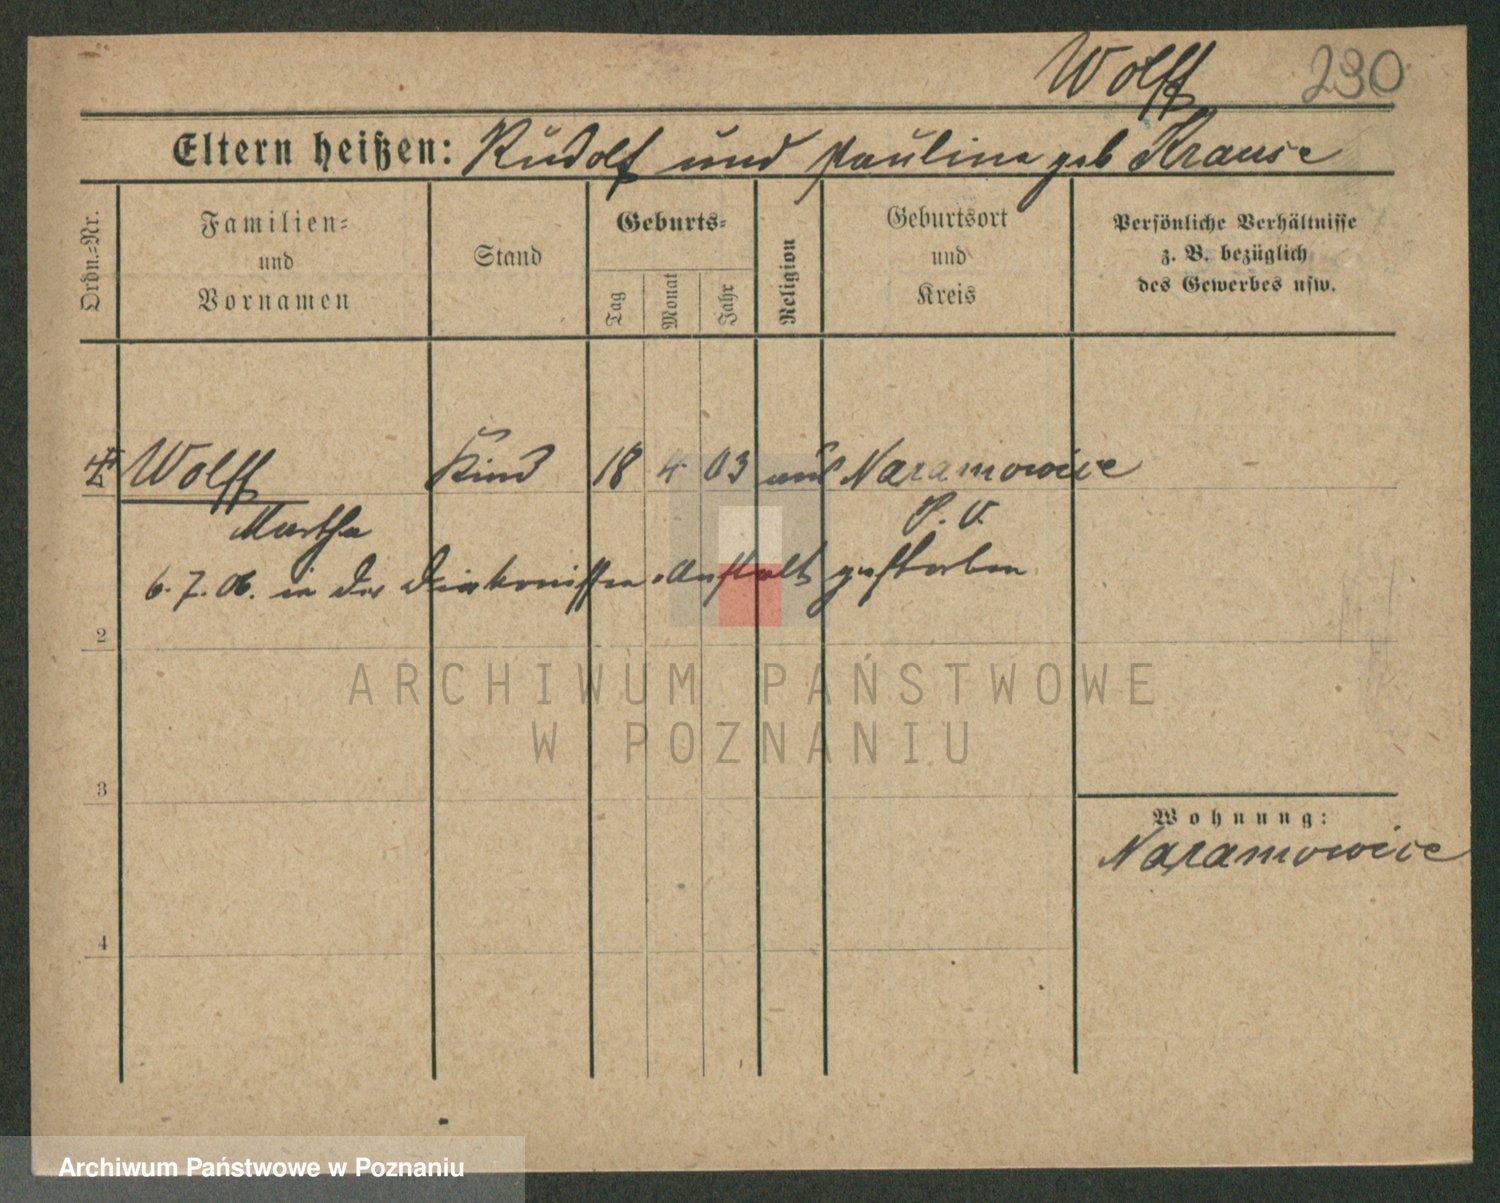 Wolff 230
Eltern heißen: Rudolf und Pauline geb Krause
Ordn.=Nr.
Familien=
und
Vornamen
Stand
Geburts=
Tag
Monat
Jahr
Religion
Geburtsort
und
Kreis
Persönliche Verhältnisse
z. B. bezüglich
des Gewerbes usw.
Wolff Kind 18 4 03 Naramowice
Martha P. O.
6.7.06. in der Diakonissen-Anstalt gestorben
2
ARCHIWUM PAŃSTWOWE
W POZNANIU
3
Wohnung:
Naramowice
4
Archiwum Państwowe w Poznaniu